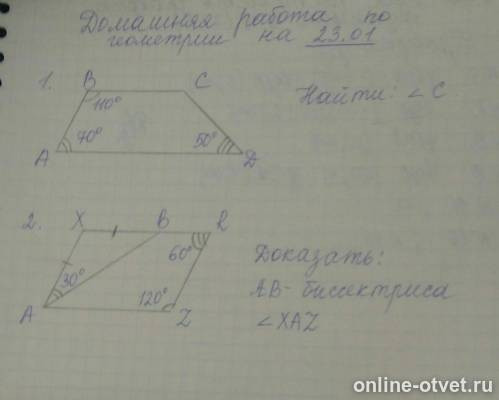 Домашняя работа по
геометрии на 23.01
1.
B
C
110°
Найти: ∠C
70°
50°
A
D
2.
X
B
R
60°
Доказать:
30°
AB - бисектриса
120°
A
Z
∠XAZ
online-otvet.ru